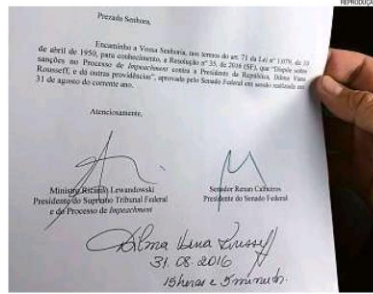 REPRODUÇÃO
Prezada Senhora,
Encaminho a Vossa Senhoria, nos termos do art. 71 da Lei nº 1.079, de 10
de abril de 1950, para conhecimento, a Resolução nº 35, de 2016 (SF), que "Dispõe sobre
sanções no Processo de Impeachment contra a Presidente da República, Dilma Vana
Rousseff, e dá outras providências", aprovada pelo Senado Federal em sessão realizada em
31 de agosto do corrente ano.
Atenciosamente,
Ministro Ricardo Lewandowski
Presidente do Supremo Tribunal Federal
e do Processo de Impeachment
Senador Renan Calheiros
Presidente do Senado Federal
Dilma Vana Rousseff
31.08.2016
15horas e 5 minutos.